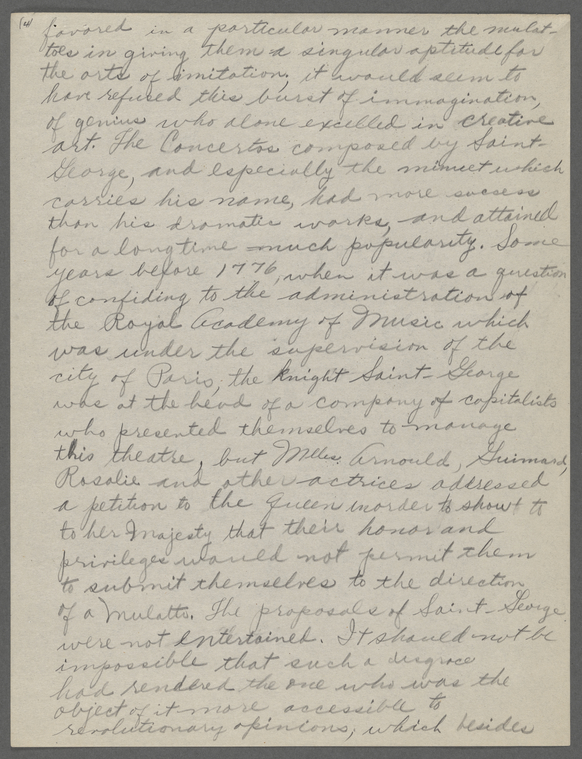 (4)
favored in a particular manner the mulat-
toes in giving them a singular aptitude for
the arts of imitation, it would seem to
have refused this burst of immagination,
of genius who alone excelled in creative
art. The Concertos composed by Saint-
George, and especially the minuet which
carries his name, had more success
than his dramatic works, and attained
for a longtime much popularity. Some
years before 1776, when it was a question
of confiding to the administration of
the Royal Academy of Music which
was under the supervision of the
city of Paris, the knight Saint-George
was at the head of a company of capitalists
who presented themselves to manage
this theatre, but Mlles. Arnould, Guimard,
Rosalie and other actrices addressed
a petition to the Queen inorder to show to
to her Majesty that their honor and
privileges would not permit them
to submit themselves to the direction
of a Mulatto. The proposals of Saint-George
were not entertained. It should not be
impossible that such a disgrace
had rendered the one who was the
object of it more accessible to
revolutionary opinions, which besides